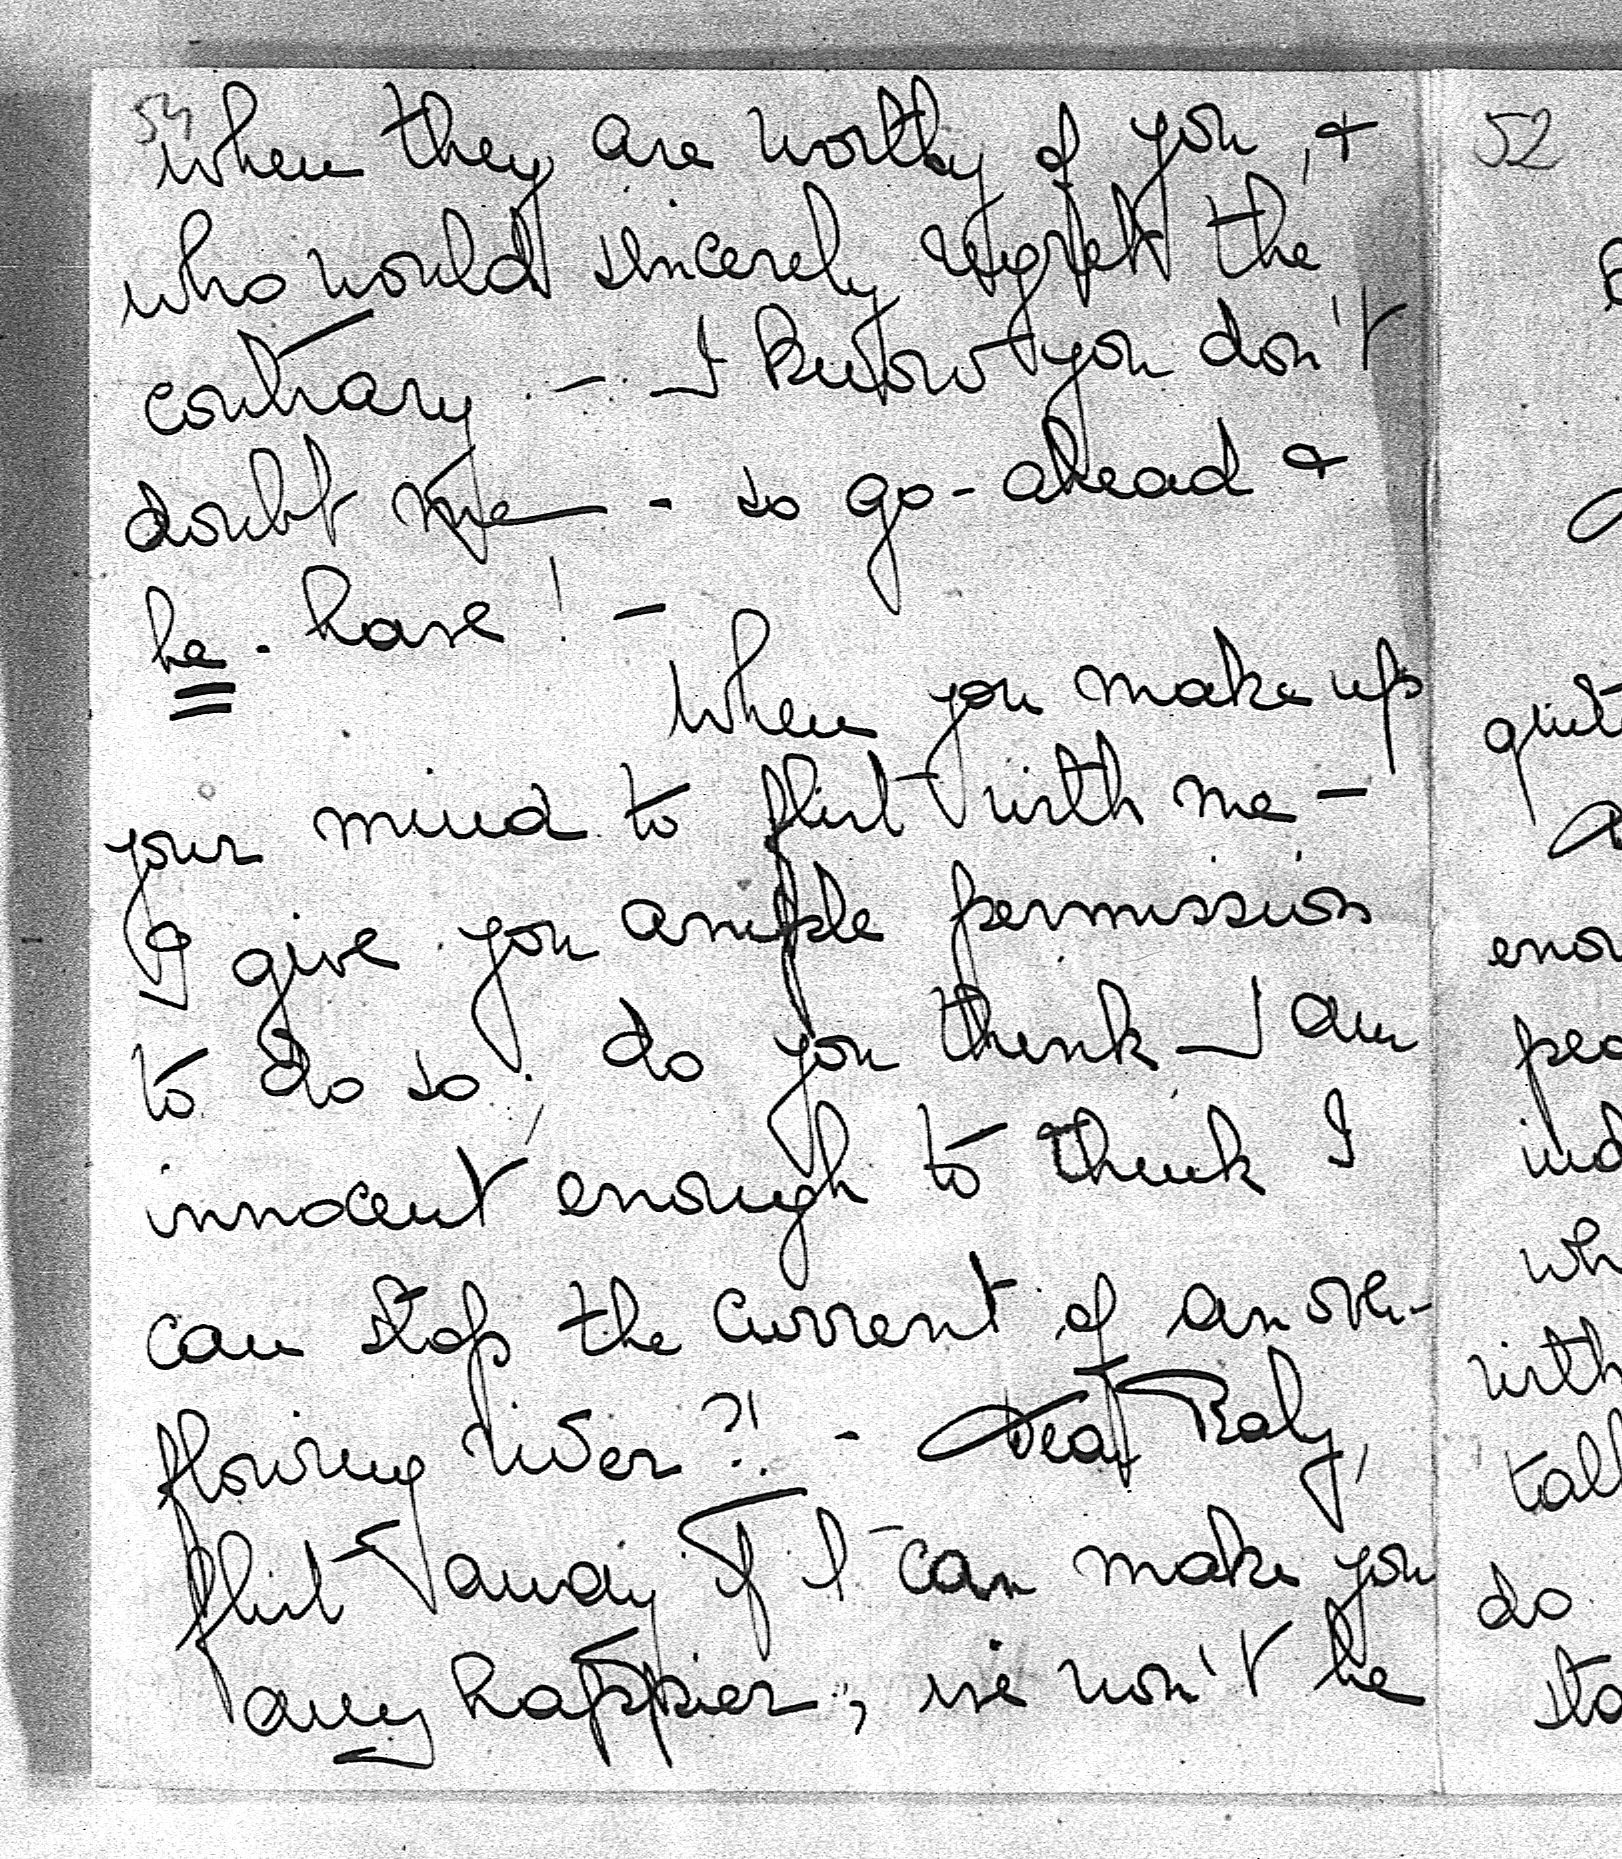 54
when they are worthy of you, &
who would sincerely regret the
contrary. - I know you don't
doubt me - so go-ahead &
be-have! -
When you make up
your mind to flirt with me -
I give you ample permission
to do so; do you think I am
innocent enough to think I
can stop the current of an over-
flowing river?! - Dear Raly,
flirt away if I can make you
any happier; we won't be
52
quit
enou
pea
ind
wh
with
tall
do
sta